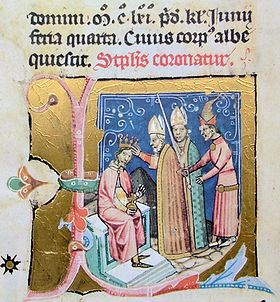 domini. oͦ. c̄. lxi. p̄o. kl'. Junij
feria quarta. Cuius corp⁹ albe
quiescit. Stephs coronatur.